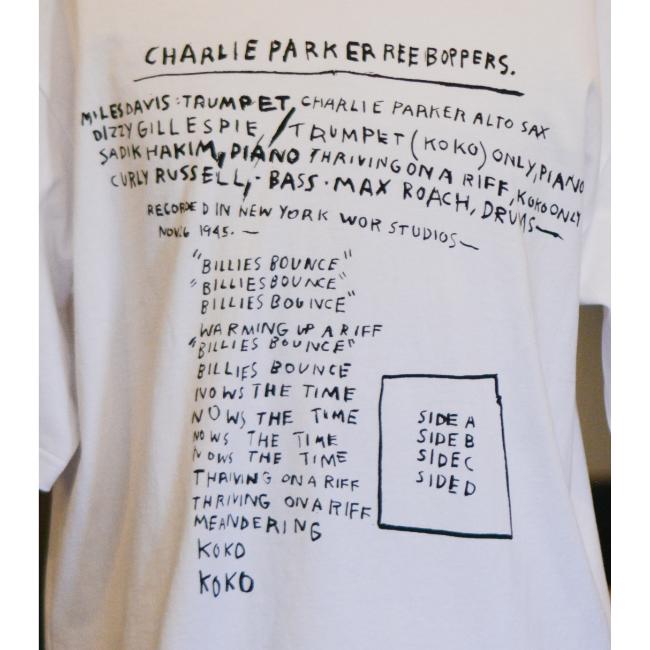 CHARLIE PARKER REE BOPPERS.
MILES DAVIS : TRUMPET, CHARLIE PARKER ALTO SAX
DIZZY GILLESPIE, / TRUMPET (KOKO) ONLY, PIANO
SADIK HAKIM, PIANO THRIVING ON A RIFF, KOKO ONLY
CURLY RUSSELL, - BASS - MAX ROACH, DRUMS—
RECORDED IN NEW YORK WOR STUDIOS—
NOV.6 1945. —
"BILLIES BOUNCE"
"BILLIES BOUNCE"
BILLIES BOUNCE"
WARMING UP A RIFF
"BILLIES BOUNCE"
BILLIES BOUNCE
NOWS THE TIME
NOWS THE TIME
NOWS THE TIME
NOWS THE TIME
THRIVING ON A RIFF
THRIVING ON A RIFF
MEANDERING
KOKO
KOKO
SIDE A
SIDE B
SIDE C
SIDE D